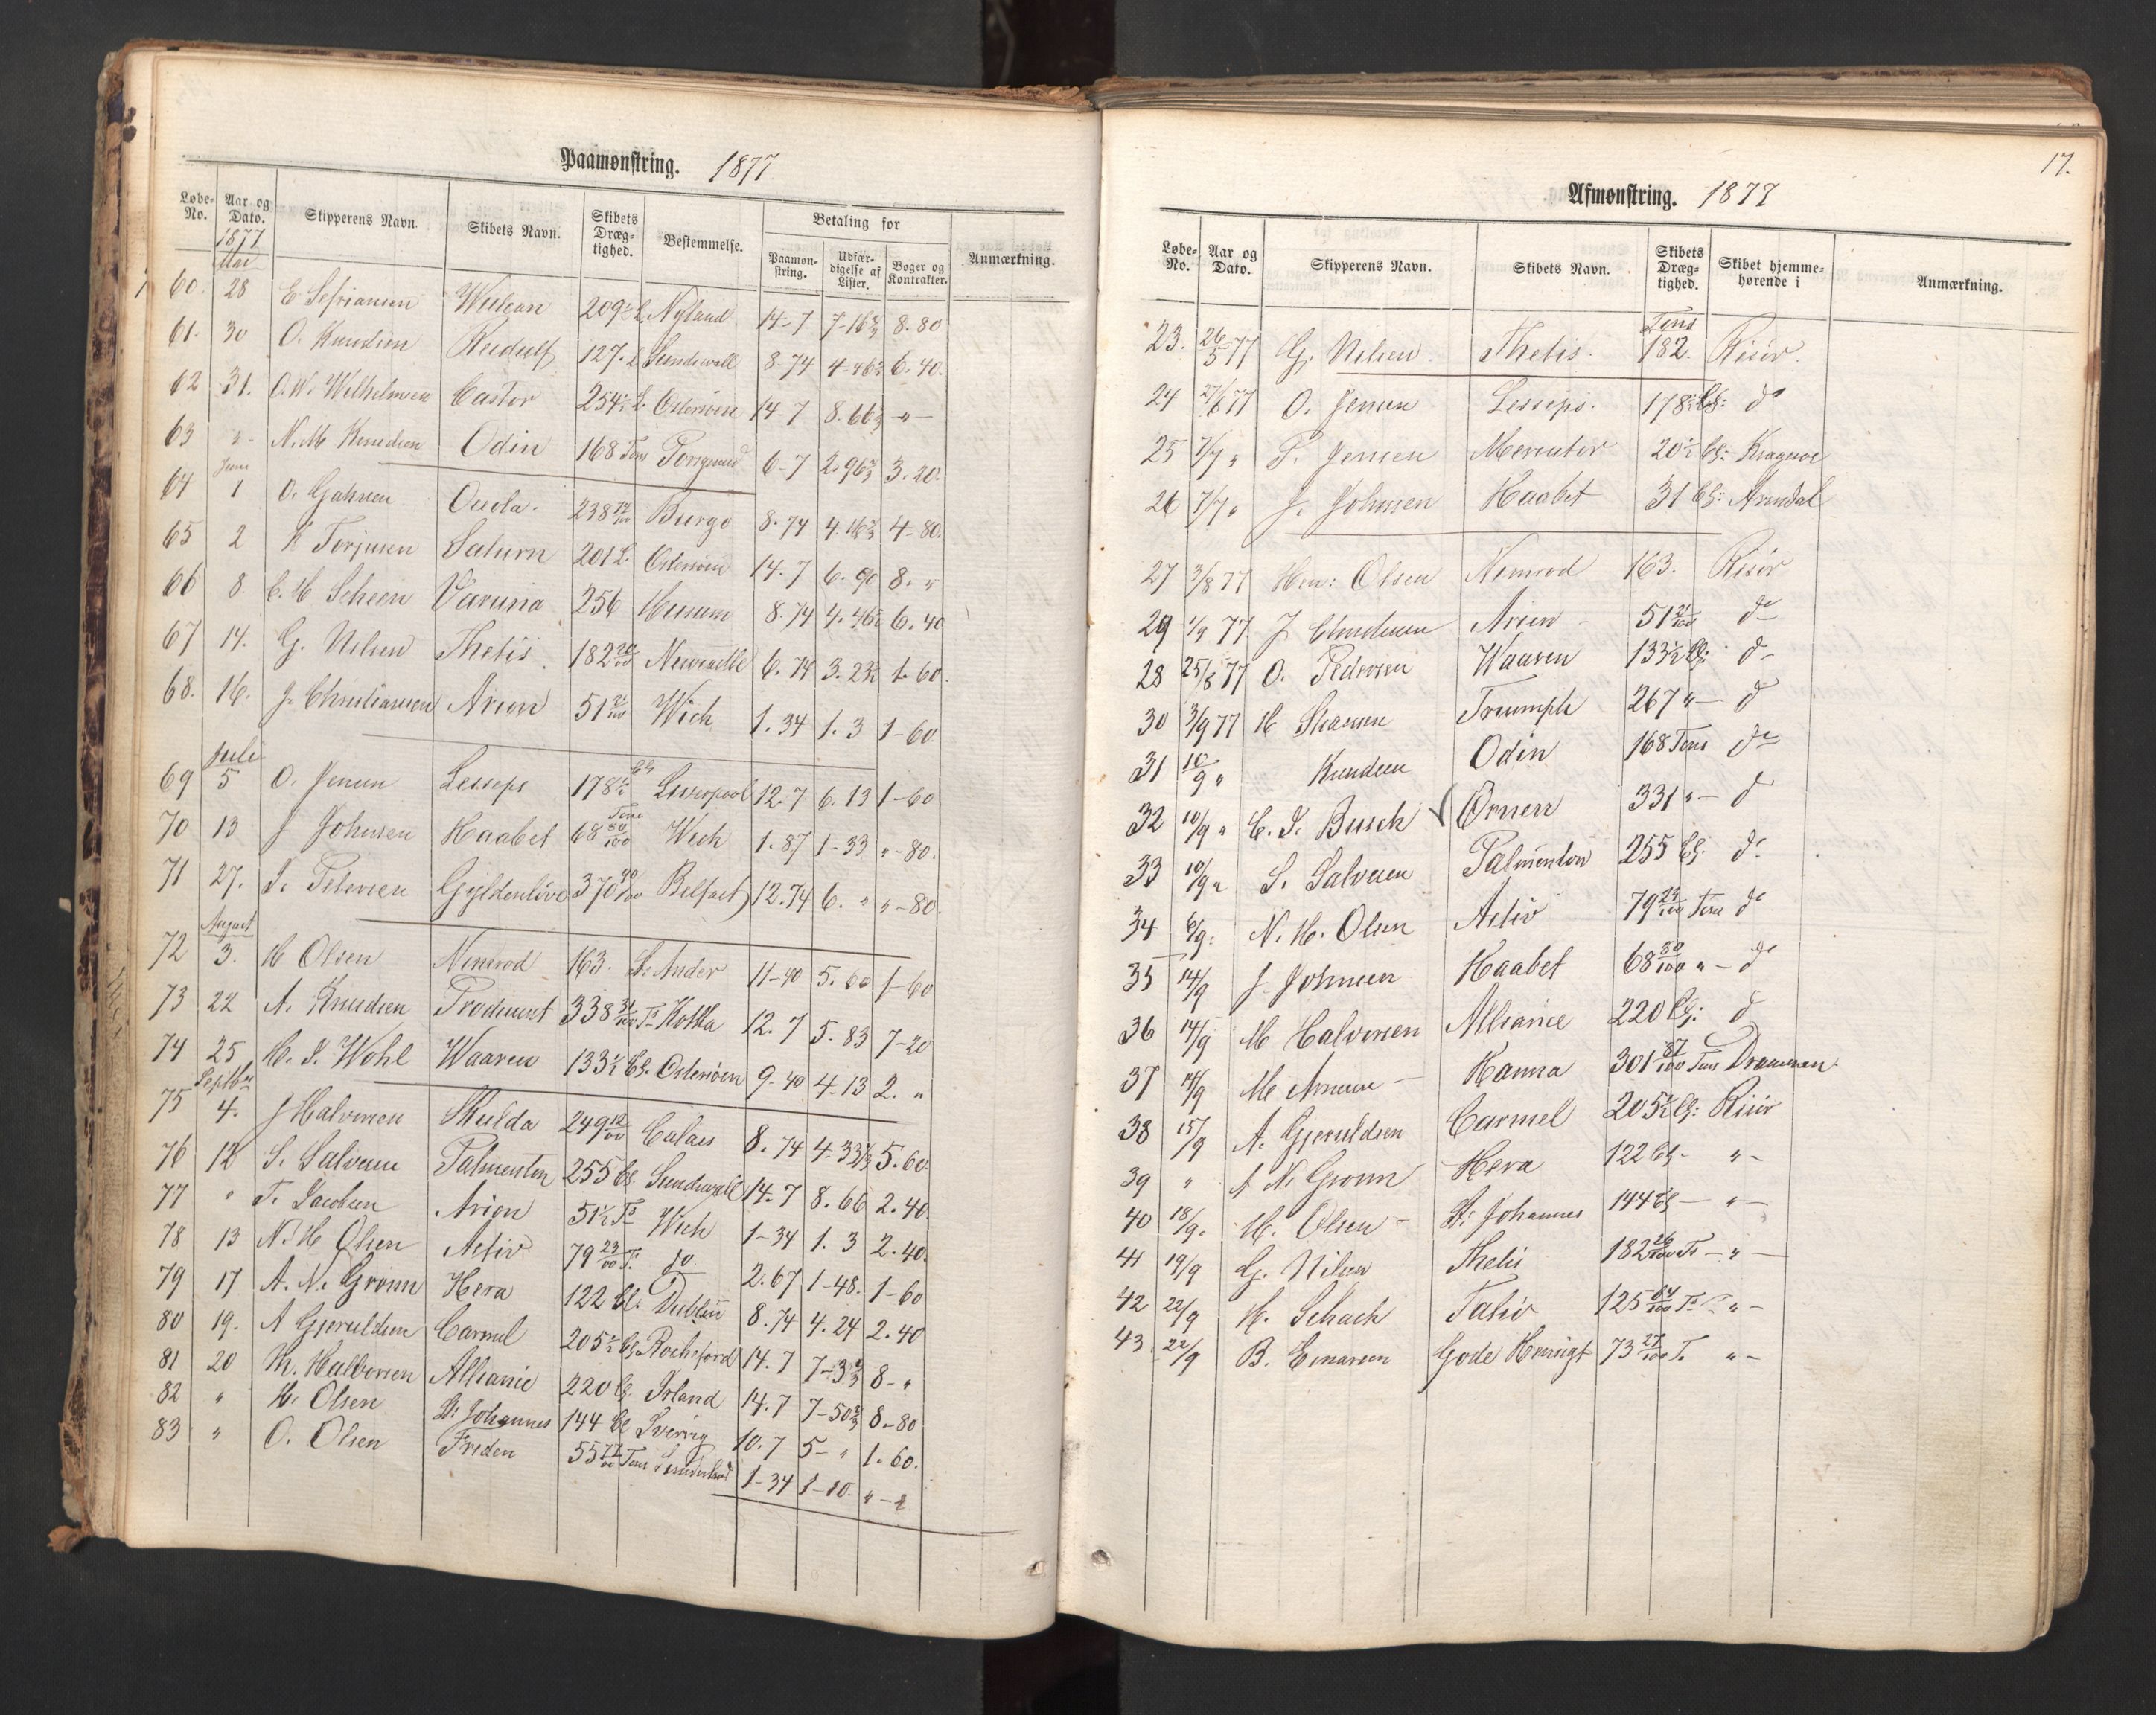 Paamønstring. 1877
Løbe-No. Aar og Dato. Skipperens Navn. Skibets Navn. Skibets Dræg-tighed. Bestemmelse. Betaling for Paamøn-string. Udfær-digelse af Lister. Bøger og Kontrakter. Anmærkning.
1877
Mai
60. 28 Nyland 14-7 7-16⅔ 8.80
61. 30 O. Knudsen 127. Sundswall 8.74 6.40.
62 31. O. W. Wilhelmsen Castor 254½ Østersøen 14-7 8.66⅔ "-
63 "- N. M. Knudsen Odin 168 Tons 6-7 2.96⅔ 3.20.
Juni
64 1 238 12/100 8.74 4.16⅔ 4-80.
65 2 K Torjusen Saturn 201 Østersøen 14.7 6.90 8. "
66 8 Varuna 256 Husum 8.74 6.40
67 14. G. Nilsen Thetis. 182 26/100 Newcastle 6.74 1.60.
68. 16. J. Christiansen Arion 51 Wich 1.34 1.3 1-60
Juli
69 5 O. Jensen Lesseps 178½ Cl Liverpool 12.7 6.13 1-60
70 13 J Johnsen Haabet 68 80/100 Tons Wich 1.87 1-33 "-80.
71 27. Petersen Gyldenløve 370 Belfast 12.74 6. " "-80.
August
72 3. H Olsen Nimrod 163. St. Ander 11-40 5.60 1-60
73 22 A. Knudsen 338 31/100 Ts Kotka 12.7 5.83 7-20
74 25 Wohl Waaren 133½ Cl. Østersøen 9-40 4-13 2. "
Septbr
75 4. J Halvorsen Skulda 249 12/100 Calais 8.74 4.33⅓ 5.60.
76 12 S. Salvesen Palmerston 255 Cl. Sundswall 14.7 8.66 2.40.
77 " T. Jacobsen Arion 51½ Ts Wich 1-34 1.3 2.40.
78 13 N. H Olsen Activ 79 23/100 T. do 2.67 1-48. 1-60
79 17 A. N. Grønn Hera 122 Cl. Dublin 8.74 4.24 2.40
80 19. A Gjeruldsen Carmel 205½ Cl Rocheford 14.7 7-3⅔ 8-"
81 20 M. Halvorsen Alliance 220 Cl. Irland 14.7 7-50⅔ 8.80
82 " H. Olsen St. Johannes 144 Cl 10.7 5-" 1.60.
83 " O. Olsen Friden 55 77/100 Tons Sunderland 1-34 1-10.
17.
Afmønstring. 1877
Løbe-No. Aar og Dato. Skipperens Navn. Skibets Navn. Skibets Dræg-tighed. Skibet hjemme-hørende i Anmærkning.
23. 26/5 77 G. Nilsen. Thetis. Tons 182. Risør.
24 27/6 77 O. Jensen Lesseps. 178½ Cl: do
25 7/7 " P. Jensen Mercator 20½ Cl: Kragerøe
26 7/7 " J. Johnsen Haabet 31 Cl: Arendal
27 3/8 77 Hen: Olsen Nimrod 163. Risør
29 1/9 77 J Christiansen Arion 51 21/100 do
28 25/8 77 O. Pedersen Waaren 133½ Cl: do
30 3/9 77 Triumph 267 "- do
31 10/9 " Knudsen Odin 168 Tons do
32 10/9 " Busch Ørnen 331 "- do
33 10/9 " S. Salvesen Palmerston 255 Cl. do.
34 6/9. N. H. Olsen Activ 79 23/100 Tons do
35 14/9 J. Johnsen Haabet 68 80/100 "- do
36 14/9 M Halvorsen Alliance 220 Cl: do
37 14/9 Hanna 301 87/100 Tons Drammen
38 15/9 A. Gjeruldsen Carmel 205½ Cl: Risør
39 " A N. Grønn Hera 122 Cl- "-
40 18/9. H. Olsen St. Johannes 144 Cl- "-
41 19/9 G. Nilsen Thetis 182 26/100 Ts- "-
42 22/9 H. Schack 125 64/100 Ts "-
43 22/9 B. Gode Hensigt 73 27/100 T. "-